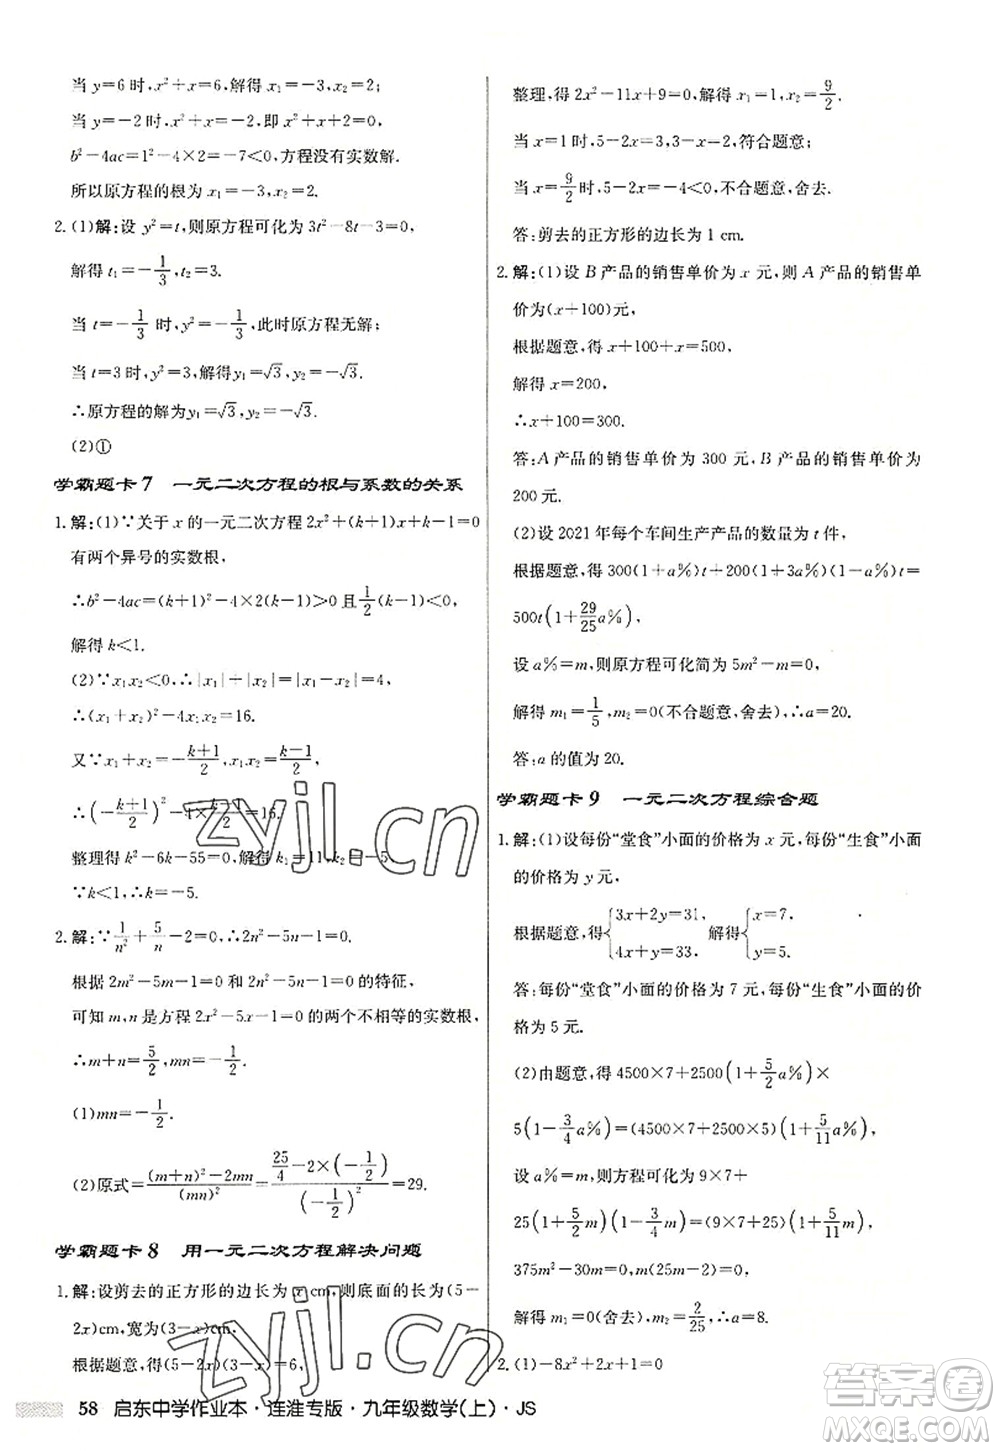 当 y=6 时,x²+x=6,解得 x₁=-3,x₂=2;
当 y=-2 时,x²+x=-2,即 x²+x+2=0,
b²-4ac=1²-4×2=-7<0,方程没有实数解.
所以原方程的根为 x₁=-3,x₂=2.
2. (1)解:设 y²=t,则原方程可化为 3t²-8t-3=0,
解得 t₁=-1/3,t₂=3.
当 t=-1/3 时,y²=-1/3,此时原方程无解;
当 t=3 时,y²=3,解得 y₁=√3,y₂=-√3.
∴原方程的解为 y₁=√3,y₂=-√3.
(2)①
学霸题卡 7 一元二次方程的根与系数的关系
1. 解:(1)∵关于 x 的一元二次方程 2x²+(k+1)x+k-1=0
有两个异号的实数根,
∴b²-4ac=(k+1)²-4×2(k-1)>0 且 1/2(k-1)<0,
解得 k<1.
(2)∵x₁x₂<0,∴|x₁|+|x₂|=|x₁-x₂|=4,
∴(x₁+x₂)²-4x₁x₂=16.
又∵x₁+x₂=-(k+1)/2,x₁x₂=(k-1)/2,
∴(-(k+1)/2)²-4×(k-1)/2=16.
整理得 k²-6k-55=0,解得 k₁=11,k₂=-5.
∵k<1,∴k=-5.
2. 解:∵1/n²+5/n-2=0,∴2n²-5n-1=0.
根据 2m²-5m-1=0 和 2n²-5n-1=0 的特征,
可知 m,n 是方程 2x²-5x-1=0 的两个不相等的实数根,
∴m+n=5/2,mn=-1/2.
(1)mn=-1/2.
(2)原式=((m+n)²-2mn)/(mn)²=(25/4-2×(-1/2))/(-1/2)²=29.
学霸题卡 8 用一元二次方程解决问题
1. 解:设剪去的正方形的边长为 x cm,则底面的长为(5-
2x)cm,宽为(3-x)cm,
根据题意,得(5-2x)(3-x)=6,
整理,得 2x²-11x+9=0,解得 x₁=1,x₂=9/2.
当 x=1 时,5-2x=3,3-x=2,符合题意;
当 x=9/2 时,5-2x=-4<0,不符合题意,舍去.
答:剪去的正方形的边长为 1 cm.
2. 解:(1)设 B 产品的销售单价为 x 元,则 A 产品的销售单
价为(x+100)元,
根据题意,得 x+100+x=500,
解得 x=200,
∴x+100=300.
答:A 产品的销售单价为 300 元,B 产品的销售单价为
200 元.
(2)设 2021 年每个车间生产产品的数量为 t 件,
根据题意,得 300(1+a%)t+200(1+3a%)(1-a%)t=
500t(1+29/25a%),
设 a%=m,则原方程可化简为 5m²-m=0,
解得 m₁=1/5,m₂=0(不合题意,舍去),∴a=20.
答:a 的值为 20.
学霸题卡 9 一元二次方程综合题
1. 解:(1)设每份“堂食”小面的价格为 x 元,每份“生食”小面
的价格为 y 元,
根据题意,得{3x+2y=31, 4x+y=33. 解得{x=7, y=5.
答:每份“堂食”小面的价格为 7 元,每份“生食”小面的价格
为 5 元.
(2)由题意,得 4500×7+2500(1+5/2a%)×
5(1-3/4a%)=(4500×7+2500×5)(1+5/11a%),
设 a%=m,则方程可化为 9×7+
25(1+5/2m)(1-3/4m)=(9×7+25)(1+5/11m),
375m²-30m=0,
解得 m₁=0(舍去),m₂=2/25,∴a=8.
2. (1)-8x²+32x+1540
58 启东中学作业本·连淮专版·九年级数学(上)·JS
zyjl.cn
zyjl.cn
答案圈
MXQE.COM